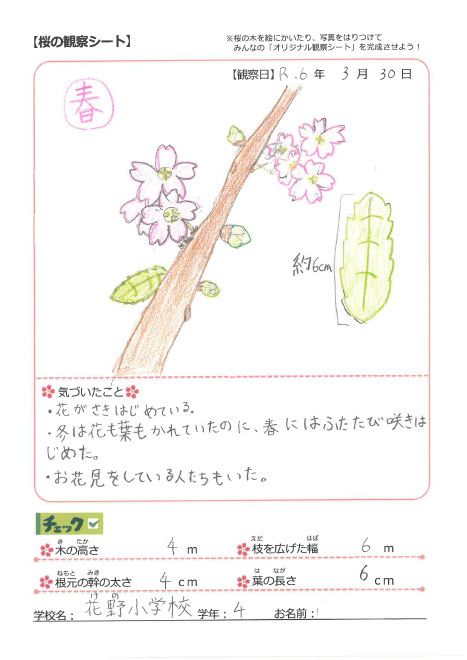 【桜の観察シート】
※桜の木を絵にかいたり、写真をはりつけて
みんなの「オリジナル観察シート」を完成させよう！
【観察日】R.6年 3月 30日
春
約6cm
気づいたこと
・花がさきはじめている.
・冬は花も葉もかれていたのに、春にはふたたび咲きは
じめた。
・お花見をしている人たちもいた。
チェック
き たか
木の高さ 4 m
えだ はば
枝を広げた幅 6 m
ねもと みき
根元の幹の太さ 4 cm
は なが
葉の長さ 6 cm
けの
学校名： 花野小学校 学年： 4 お名前：